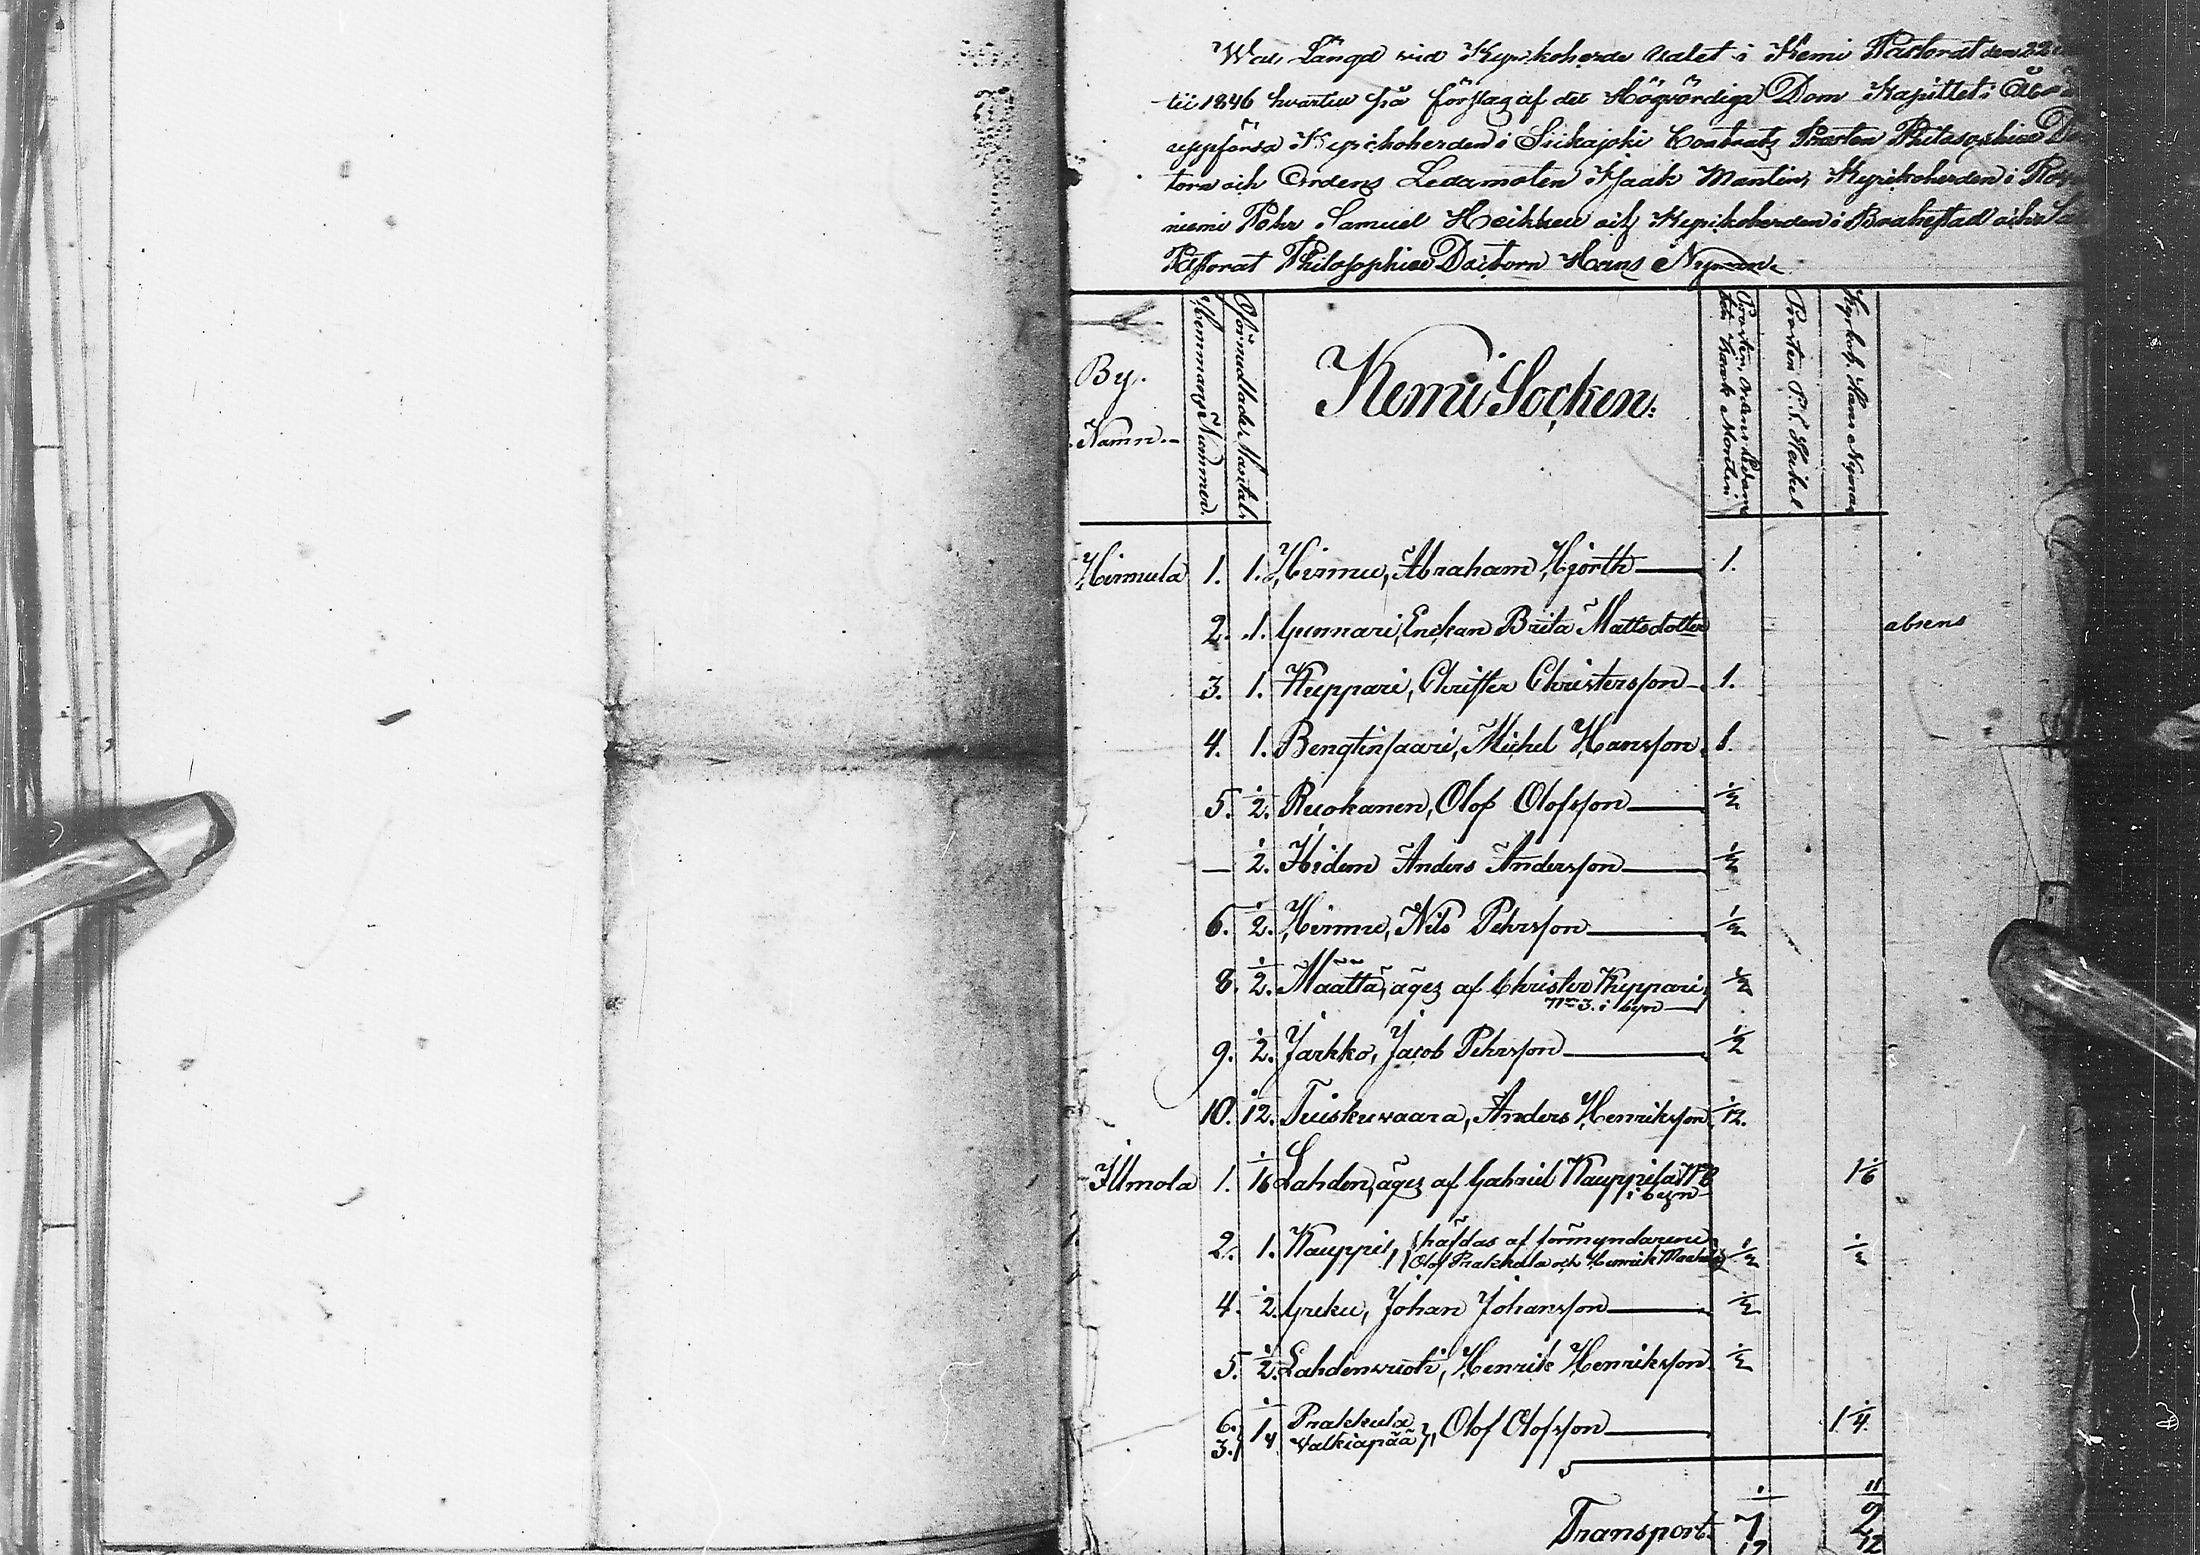 Wal Längd vid Kyrkoherde valet i Kemi Pastorat den 22
tii 1846 hvartill på förslag af det Högvördige Dom Kapitlet i Åbo
uppförda Kyrckoherden i Siikajoki Contracts Prosten Philosophiæ
torn och Ordens Ledamoten Isaak Montin, Kyrckoherden i
niemi Pehr Samuel Heikkel och Kyrckoherden i Brahestad och
Pastorat Philosophiæ Doctorn Hans Nyman.
By.
Namn.
Hemmans Nummer.
Oförmedlader Mantal.
Kemi Socken.
Prosten, Ordens Ledam
Isaak Montin
Prosten P. S. Heikel
Kyrkoh. Hans Nyman
Hirmula 1. 1. Hirmu, Abraham Hjorth 1.
2. 1. Gunnari, Enckan Brita Mattsdotter absens
3. 1. Kuppari, Christer Christersson 1.
4. 1. Bengtinsaari, Michel Hansson 1.
5. ½. Ruokanen, Olof Olofsson ½
— ½. Hidem Anders Andersson ½
6. ½. Hirmu, Nils Pehrsson ½
8. ½. Määttä, äges af Christer Kuppari, ½
No 3. i byn
9. ½. Jarkko, Jacob Pehrsson ½
10. 1/12. Tuiskuvaara, Anders Henriksson 1/12.
Ilmola 1. 1/6 Lahden, äges af Gabriel Kauppila No
i byn 1 1/6
2. 1. Kauppi, häfdas af förmyndarene ½ ½
Olof Prakkula och Henrik
4. ½. Greku, Johan Johansson ½
5. ½. Lahdenvuoti, Henrik Henriksson ½
6. 3. 1 ¼ Prakkula Valkiapää, Olof Olofsson 1 ¼.
Transport. 7